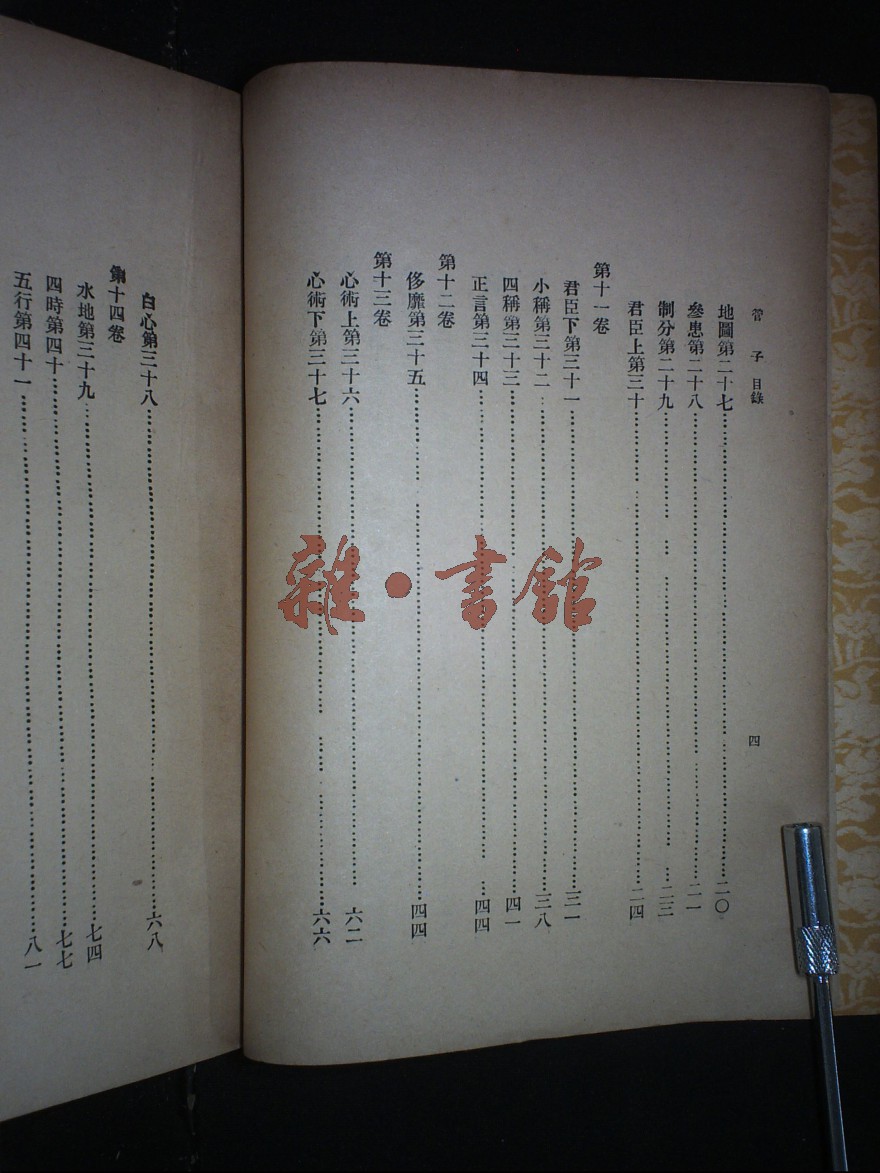 管子 目錄
四
地圖第二十七……二〇
參患第二十八……二一
制分第二十九……二三
君臣上第三十……二四
第十一卷
君臣下第三十一……三一
小稱第三十二……三八
四稱第三十三……四一
正言第三十四……四四
第十二卷
侈靡第三十五……四四
第十三卷
心術上第三十六……六二
心術下第三十七……六六
白心第三十八……六八
第十四卷
水地第三十九……七四
四時第四十……七七
五行第四十一……八一
雜·書館